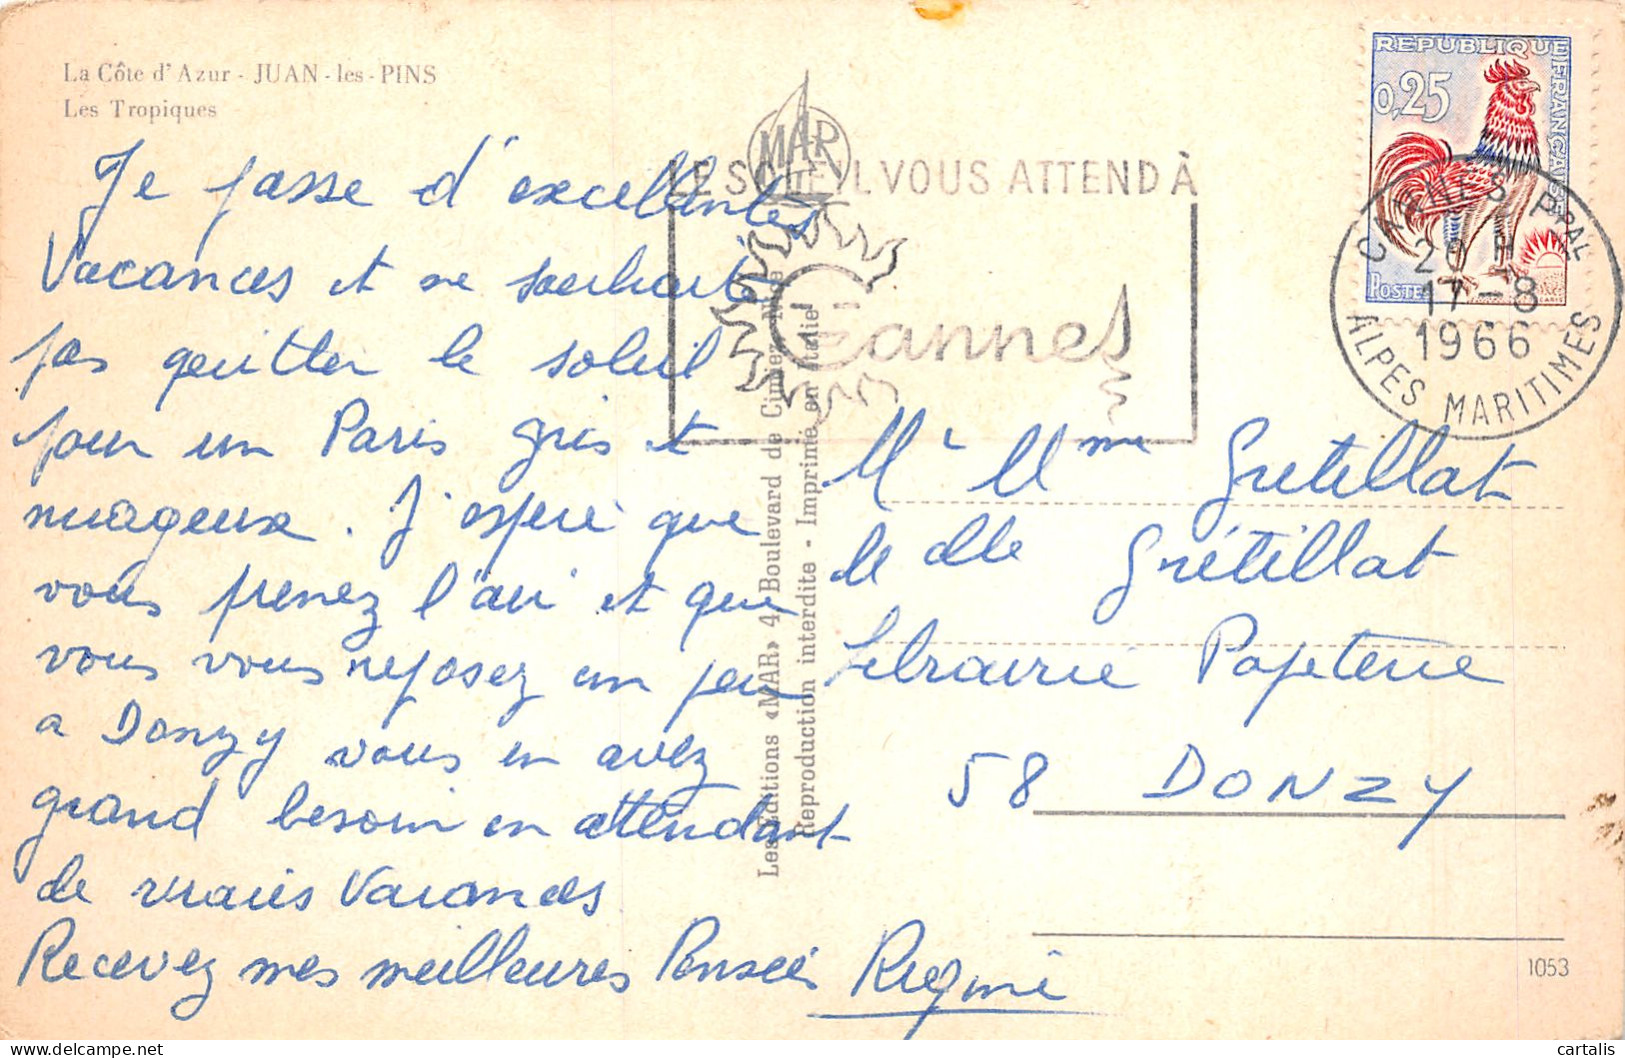 La Côte d'Azur - JUAN-les-PINS
Les Tropiques
Je passe d'excellentes
Vacances et ne souhaite
pas quitter le soleil
pour un Paris gris et
nuageux. J'espère que
vous prenez l'air et que
vous vous reposez un peu
a Donzy vous en avez
grand besoin en attendant
de vraies Vacances
Recevez mes meilleures Pensées
MAR
LE SOLEIL VOUS ATTEND À
Cannes
Les Éditions «MAR» 4 Boulevard de Cimiez Nice
Reproduction interdite - Imprimé en Italie
REPUBLIQUE FRANÇAISE
0,25
POSTES
CANNES PPAL
20 H
17-8
1966
ALPES MARITIMES
Mr Mme Gretillat
Grétillat
Librairie Papeterie
58 DONZY
1053
cartalis